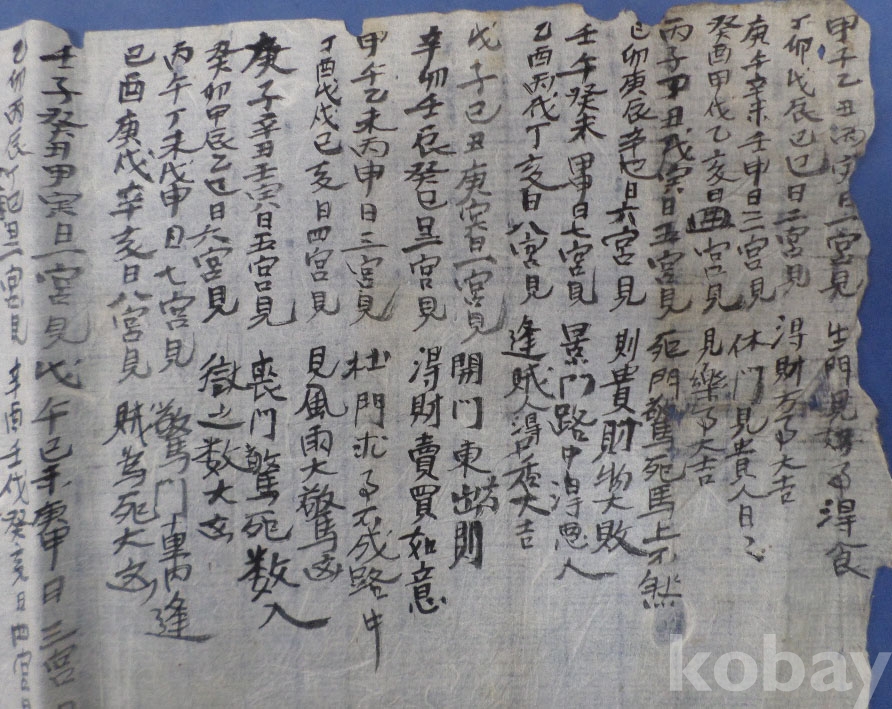 甲子乙丑丙寅日一宮見 生門見好事得食
丁卯戊辰己巳日二宮見 得財万事大吉
庚午辛未壬申日三宮見 休門見貴人日
癸酉甲戌乙亥日四宮見 見樂事大吉
丙子丁丑戊寅日五宮見 死門驚死馬上不然
己卯庚辰辛巳日六宮見 則貴財物大敗
壬午癸未甲申日七宮見 景門路中得恩人
乙酉丙戌丁亥日八宮見 逢賊人得大吉
戊子己丑庚寅日一宮見 開門東出則
辛卯壬辰癸巳日二宮見 得財賣買如意
甲午乙未丙申日三宮見 杜門求事不成路中
丁酉戊戌己亥日四宮見 見風雨大驚凶
庚子辛丑壬寅日五宮見 喪門驚死数人
癸卯甲辰乙巳日六宮見 獄之数大凶
丙午丁未戊申日七宮見 驚門千里內逢
己酉庚戌辛亥日八宮見 賊為死大凶
壬子癸丑甲寅日一宮見 戊午己未庚申日三宮
乙卯丙辰丁巳日二宮見 辛酉壬戌癸亥日四宮
kobay